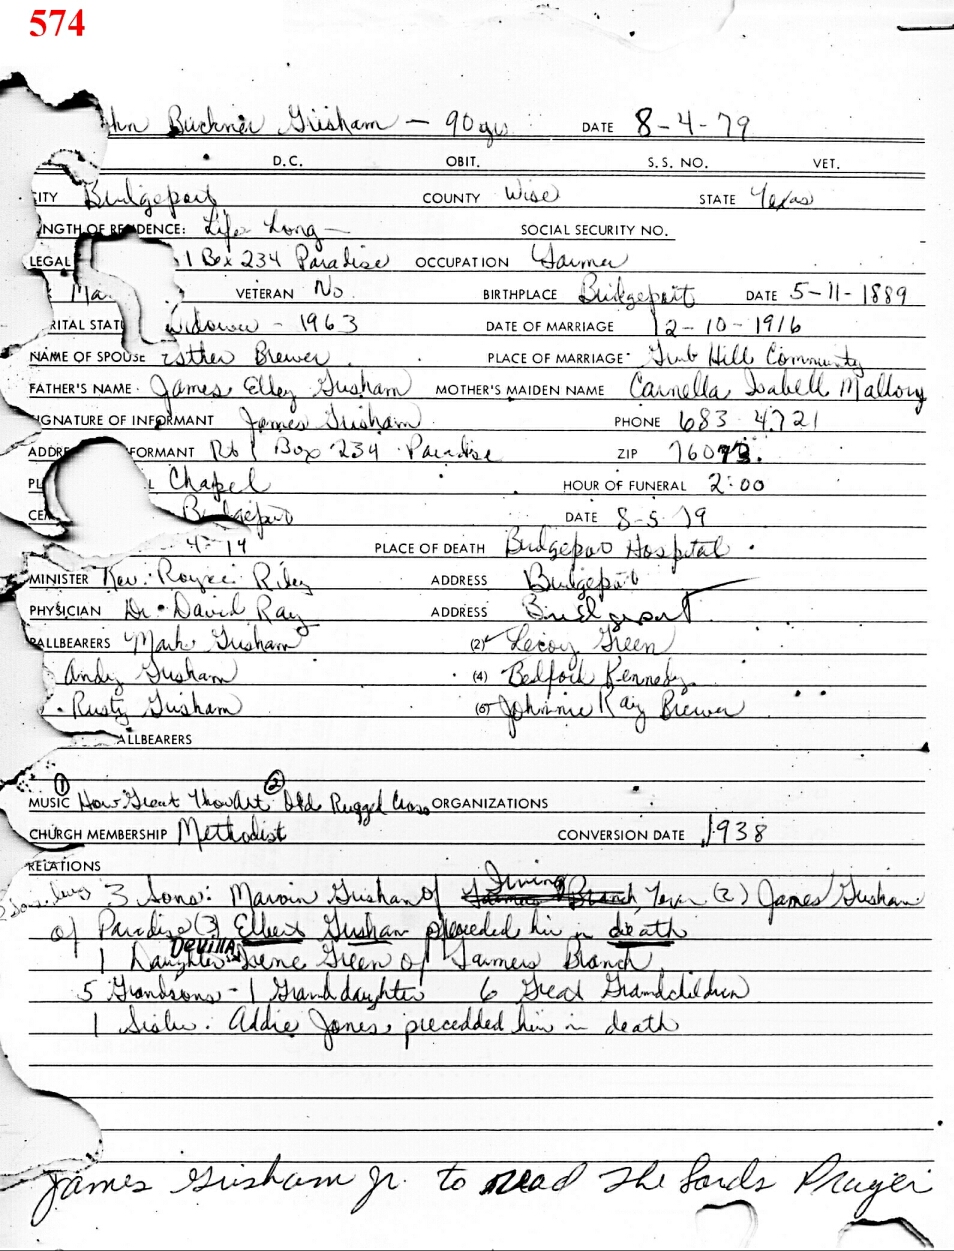 574
hn Buckner Grisham - 90 yrs DATE 8-4-79
D.C. OBIT. S.S. NO. VET.
ITY Bridgeport COUNTY Wise STATE Texas
NGTH OF RE DENCE: Life Long SOCIAL SECURITY NO.
LEGAL 1 Box 234 Paradise OCCUPATION Farmer
Ma VETERAN No BIRTHPLACE Bridgeport DATE 5-11-1889
RITAL STAT idower - 1963 DATE OF MARRIAGE 12-10-1916
NAME OF SPOUSE Esther Brewer PLACE OF MARRIAGE Grub Hill Community
FATHER'S NAME James Elley Grisham MOTHER'S MAIDEN NAME Carnella Isabell Mallory
IGNATURE OF INFORMANT James Grisham PHONE 683-4721
ADDRE FORMANT Rt 1 Box 234 Paradise ZIP 76073
PL L Chapel HOUR OF FUNERAL 2:00
CEM Bridgeport DATE 8-5-79
PLACE OF DEATH Bridgeport Hospital
MINISTER Rev. Royce Riley ADDRESS Bridgeport
PHYSICIAN Dr. David Ray ADDRESS Bridgeport
PALLBEARERS Mark Grisham (2) Lecoy Green
Andy Grisham (4) Bedford Kennedy
Rusty Grisham (6) Johnnie Ray Brewer
ALLBEARERS
① ②
MUSIC How Great Thou Art Old Rugged Cross ORGANIZATIONS
CHURCH MEMBERSHIP Methodist CONVERSION DATE 1938
RELATIONS
Irving
3 Sons: Marvin Grisham of Farmers Branch, Texas (2) James Grisham
of Paradise (3) Elbert Grisham preceeded him in death
Devilla
1 Daughter Irene Green of Farmers Branch
5 Grandsons - 1 Granddaughter 6 Great Grandchildren
1 Sister: Addie Jones, precedded him in death
James Grisham Jr. to read The Lords Prayer